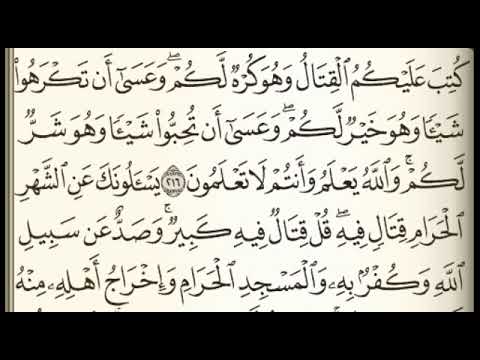 كُتِبَ عَلَيْكُمُ ٱلْقِتَالُ وَهُوَ كُرْهٌ لَّكُمْ ۖ وَعَسَىٰٓ أَن تَكْرَهُوا۟
شَيْـًٔا وَهُوَ خَيْرٌ لَّكُمْ ۖ وَعَسَىٰٓ أَن تُحِبُّوا۟ شَيْـًٔا وَهُوَ شَرٌّ
لَّكُمْ ۗ وَٱللَّهُ يَعْلَمُ وَأَنتُمْ لَا تَعْلَمُونَ ٢١٦ يَسْـَٔلُونَكَ عَنِ ٱلشَّهْرِ
ٱلْحَرَامِ قِتَالٍ فِيهِ ۖ قُلْ قِتَالٌ فِيهِ كَبِيرٌ ۖ وَصَدٌّ عَن سَبِيلِ
ٱللَّهِ وَكُفْرٌۢ بِهِۦ وَٱلْمَسْجِدِ ٱلْحَرَامِ وَإِخْرَاجُ أَهْلِهِۦ مِنْهُ